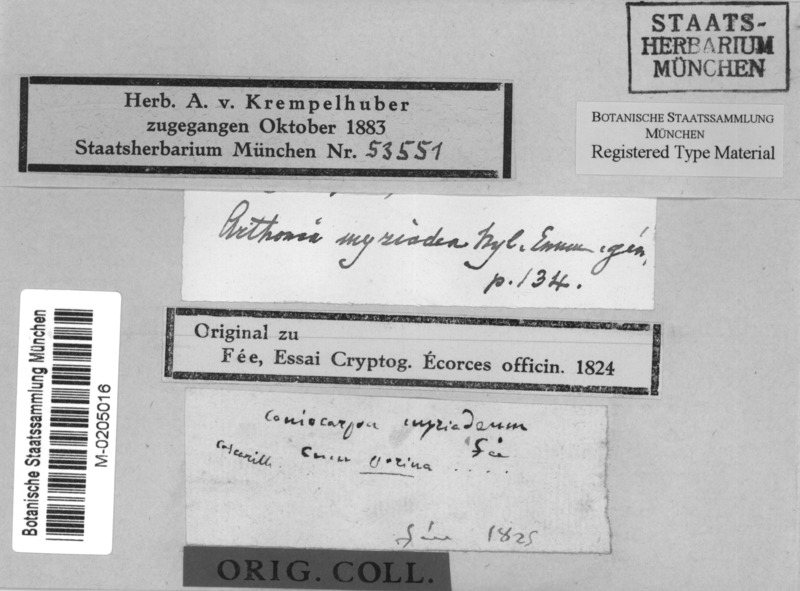 STAATS-
HERBARIUM
MÜNCHEN
Herb. A. v. Krempelhuber
zugegangen Oktober 1883
Staatsherbarium München Nr. 53551
BOTANISCHE STAATSSAMMLUNG
MÜNCHEN
Registered Type Material
Arthonia myriadea Nyl. Enum. gén.
p. 134.
Original zu
Fée, Essai Cryptog. Écorces officin. 1824
Botanische Staatssammlung München
M-0205016
Coniocarpon myriadeum
Fée
Fée 1825
ORIG. COLL.